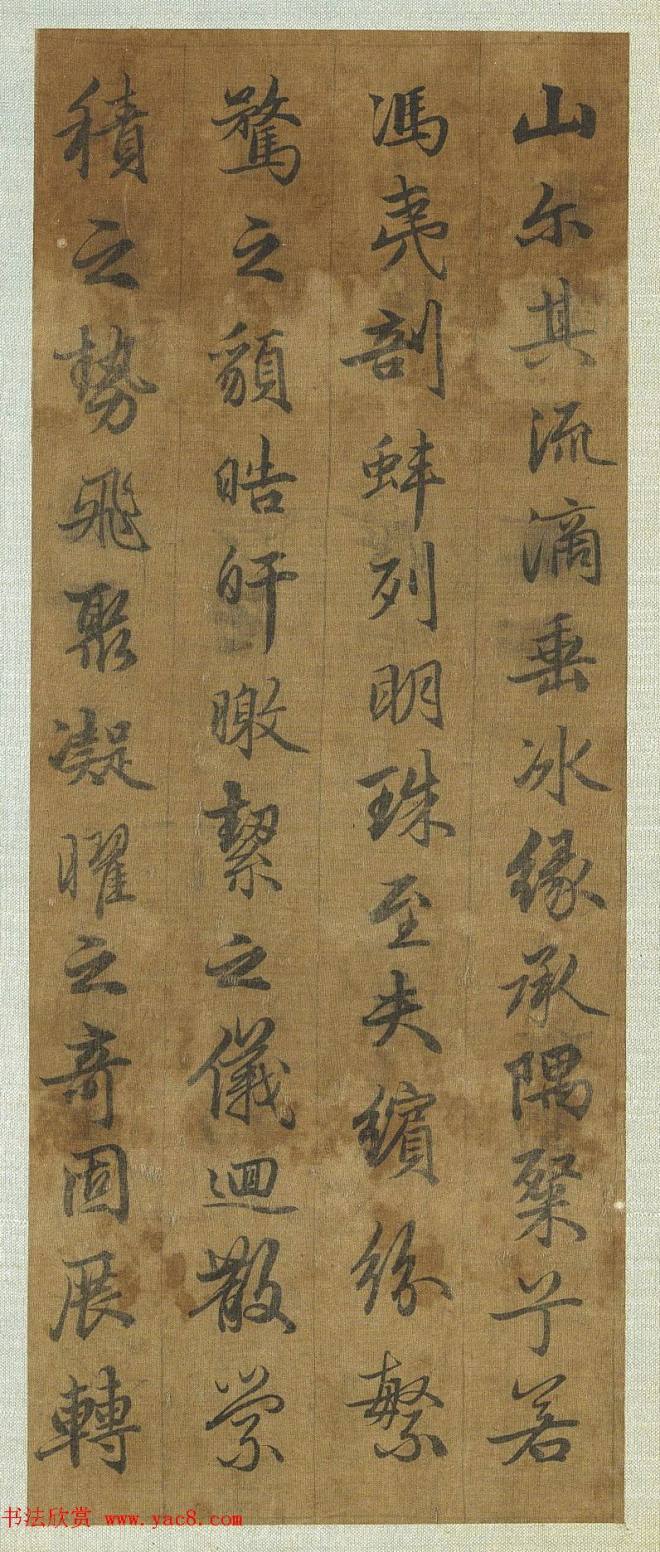 山尔其流滴垂冰缘承隅粲兮若
馮夷剖蚌列明珠至夫繽紛繁
驁之貌皓皔曒絜之儀迴散縈
積之勢飛聚凝曜之奇固展轉
书法欣赏 www.yac8.com